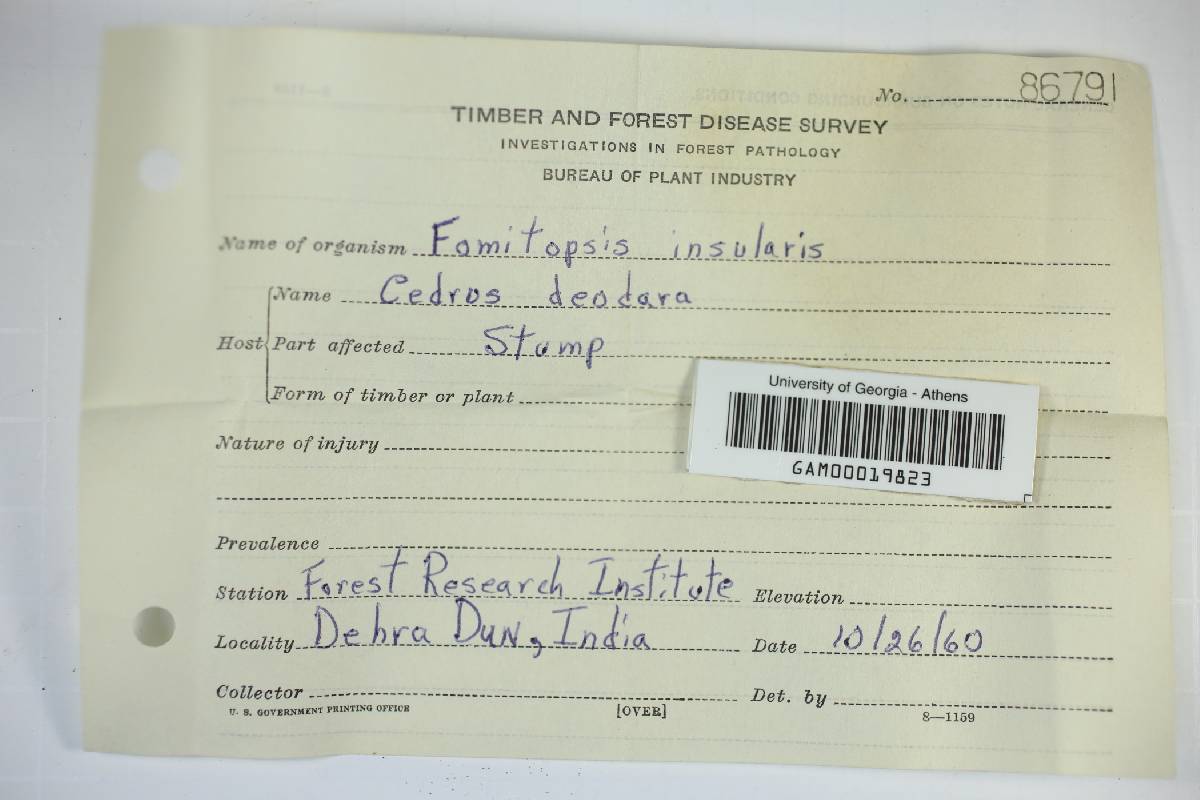 No. 86791
TIMBER AND FOREST DISEASE SURVEY
INVESTIGATIONS IN FOREST PATHOLOGY
BUREAU OF PLANT INDUSTRY
Name of organism Fomitopsis insularis
Name Cedrus deodara
Host Part affected Stump
Form of timber or plant
University of Georgia - Athens
GAM00019823
Nature of injury
Prevalence
Station Forest Research Institute Elevation
Locality Dehra Dun, India Date 10/26/60
Collector Det. by
U. S. GOVERNMENT PRINTING OFFICE [OVER] 8—1159